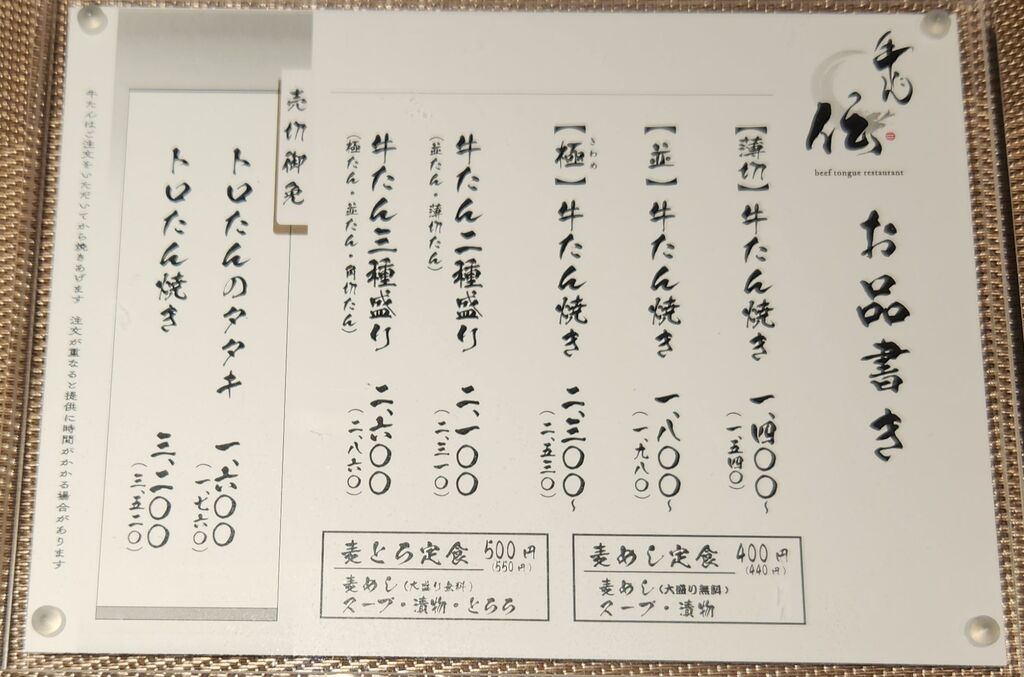 牛たん
伝
beef tongue restaurant
お品書き
【薄切】牛たん焼き 一、四〇〇～
(一、五四〇)
【並】牛たん焼き 一、八〇〇～
(一、九八〇)
きわめ
【極】牛たん焼き 二、三〇〇～
(二、五三〇)
牛たん二種盛り 二、一〇〇
(並たん・薄切たん) (二、三一〇)
牛たん三種盛り 二、六〇〇
(極たん・並たん・角切たん) (二、八六〇)
麦めし定食 400円
(440円)
麦めし(大盛り無料)
スープ・漬物
麦とろ定食 500円
(550円)
麦めし(大盛り無料)
スープ・漬物・とろろ
売切御免
トロたんのタタキ 一、六〇〇
(一、七六〇)
トロたん焼き 三、二〇〇
(三、五二〇)
牛たんはご注文をいただいてから焼きあげます 注文が重なると提供に時間がかかる場合があります